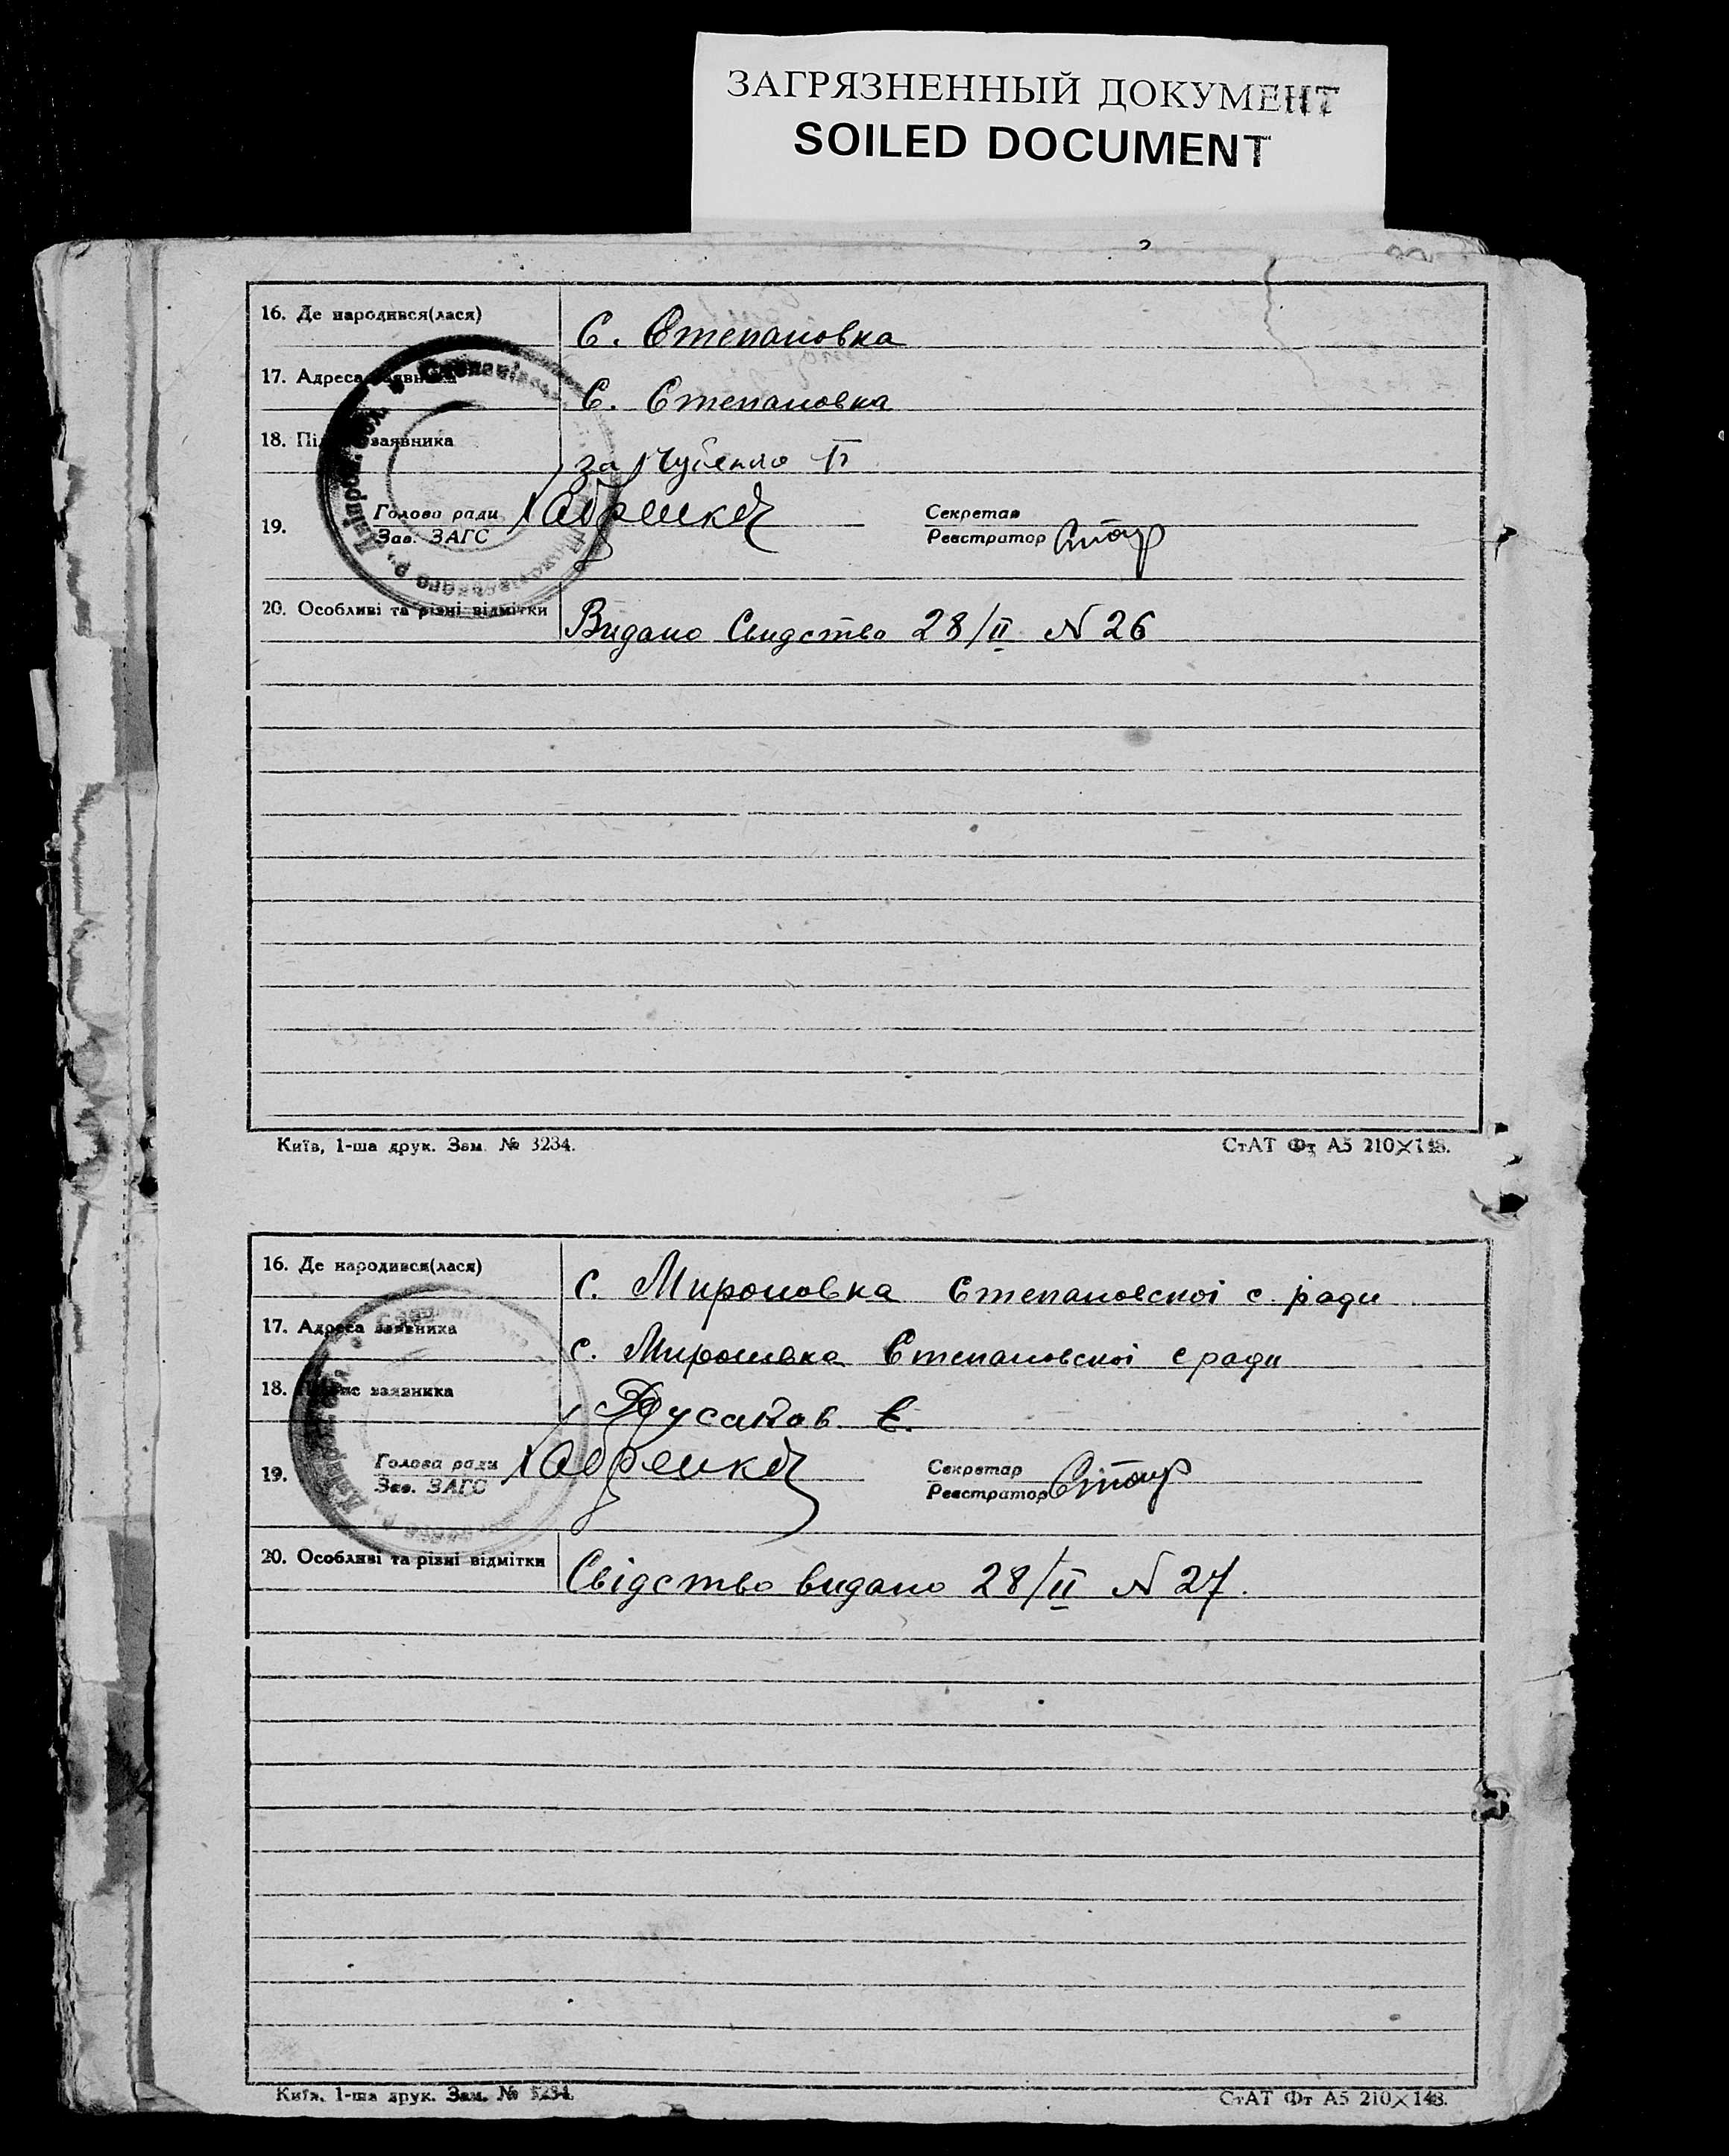 ЗАГРЯЗНЕННЫЙ ДОКУМЕНТ
SOILED DOCUMENT
16. Де народився(лася)
С. Степановка
17. Адреса заявника
С. Степановка
18. заявника
за Чубенко П
19. Голова ради
Зав. ЗАГС
Секретар
Реєстратор
20. Особливі та різні відмітки
Видано Свидство 28/II N 26
Київ, 1-ша друк. Зам. № 3234.
СтАТ Фт А5 210×148.
16. Де народився(лася)
с. Мироновка Степановскої с. ради
17. Адреса заявника
с. Мироновка Степановскої с ради
18. Підпис заявника
Русаков Е.
19. Голова ради
Зав. ЗАГС
Секретар
Реєстратор
20. Особливі та різні відмітки
Свідство видано 28/II N 27.
Київ, 1-ша друк. Зам. № 3234.
СтАТ Фт А5 210×148.